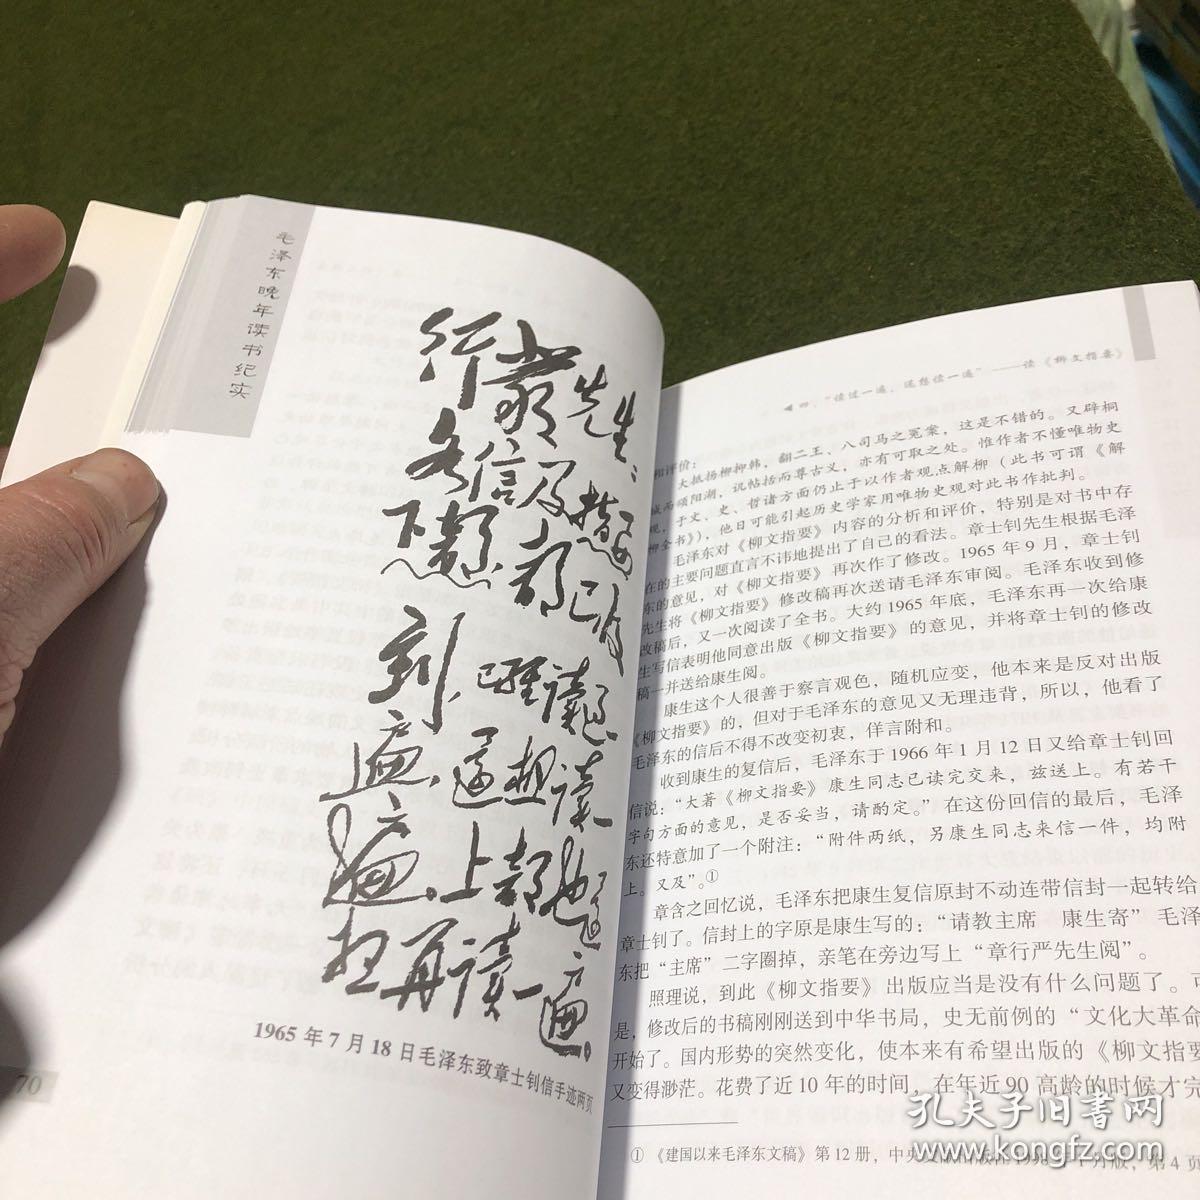 毛泽东晚年读书纪实
行严先生：
各信及指要
下部，都已收
到，已经读过
一遍，还想读
一遍。上部也
想再读一遍。
1965年7月18日毛泽东致章士钊信手迹两页
70
四、“读过一遍，还想读一遍”——读《柳文指要》
和评价：
大抵扬柳抑韩，翻二王、八司马之冤案，这是不错的。又辟桐
城而颂阳湖，讥帖括而尊古义，亦有可取之处。惟作者不懂唯物史
观，于文、史、哲诸方面仍止于以作者观点解柳（此书可谓《解
柳全书》），他日可能引起历史学家用唯物史观对此书作批判。
毛泽东对《柳文指要》内容的分析和评价，特别是对书中存
在的主要问题直言不讳地提出了自己的看法。章士钊先生根据毛泽
东的意见，对《柳文指要》再次作了修改。1965年9月，章士钊
先生将《柳文指要》修改稿再次送请毛泽东审阅。毛泽东收到修
改稿后，又一次阅读了全书。大约1965年底，毛泽东再一次给康
生写信表明他同意出版《柳文指要》的意见，并将章士钊的修改
稿一并送给康生阅。
康生这个人很善于察言观色，随机应变，他本来是反对出版
《柳文指要》的，但对于毛泽东的意见又无理违背，所以，他看了
毛泽东的信后不得不改变初衷，佯言附和。
收到康生的复信后，毛泽东于1966年1月12日又给章士钊回
信说：“大著《柳文指要》康生同志已读完交来，兹送上。有若干
字句方面的意见，是否妥当，请酌定。”在这份回信的最后，毛泽
东还特意加了一个附注：“附件两纸，另康生同志来信一件，均附
上。又及”。①
章含之回忆说，毛泽东把康生复信原封不动连带信封一起转给
章士钊了。信封上的字原是康生写的：“请教主席　康生寄”毛泽
东把“主席”二字圈掉，亲笔在旁边写上“章行严先生阅”。
照理说，到此《柳文指要》出版应当是没有什么问题了。可
是，修改后的书稿刚刚送到中华书局，史无前例的“文化大革命
开始了。国内形势的突然变化，使本来有希望出版的《柳文指要
又变得渺茫。花费了近10年的时间，在年近90高龄的时候才完
①《建国以来毛泽东文稿》第12册，中央文献出版社1998年1月版，第4页
孔夫子旧书网
www.kongfz.com